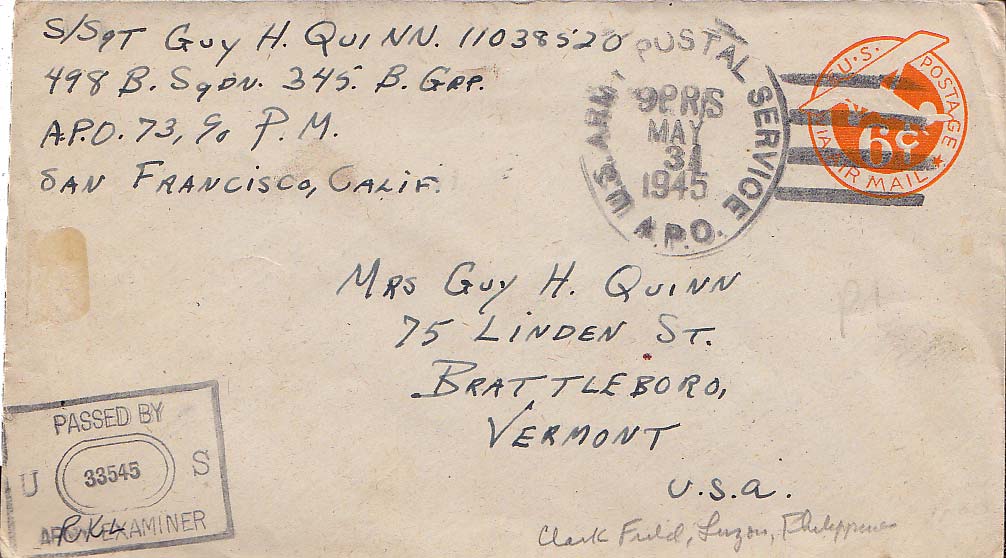 S/Sgt Guy H. Quinn. 11038520
498 B. Sqdn. 345 B. Grp.
A.P.O. 73, c/o P.M.
San Francisco, Calif.
U.S. ARMY POSTAL SERVICE
MAY
31
1945
A.P.O.
U.S. POSTAGE
6¢
AIR MAIL
Mrs Guy H. Quinn
75 Linden St.
Brattleboro,
Vermont
U.S.A.
PASSED BY
U 33545 S
ARMY EXAMINER
Clark Field, Luzon, Philippines